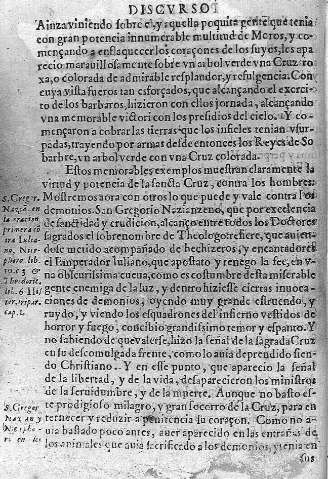 DISCVRSO I
Ainza viniendo sobre el, y aquella poquita gente que tenia
con gran potencia innumerable multitud de Moros, y co-
mençando a enflaquecer los coraçones de los suyos, les a-
parecio marauillosamente sobre vn arbol verde vna Cruz
roxa, o colorada de admirable resplandor, y refulgencia. Con
cuya vista fueron tan esforçados, que alcançando el exerci-
to de los barbaros, hizieron con ellos jornada, alcançando
vna memorable victori con los presidios del cielo. Y co-
mençaron a cobrar las tierras que los infieles tenian vsur-
padas, trayendo por armas desde entonces los Reyes de So
barbre, vn arbol verde con vna Cruz colorada.
Estos memorables exemplos muestran claramente la
virtud y potencia de la sancta Cruz, contra los hombres:
Mostremos aora con otros lo que puede y vale contra los
demonios. San Gregorio Nazianzeno, que por excelencia
de sanctidad y erudicion, alcançò entre todos los Doctores
sagrados el sobrenombre de Theologo refiere, que auien-
dole metido acompañado de hechizeros, y encantadores
el Emperador Iuliano, que apostato y renego la fee, en v-
na obscurissima cueua, como es costumbre desta miserable
gente enemiga de la luz, y dentro hiziesse ciertas inuoca-
ciones de demonios, oyendo muy grande estruendo, y
ruydo, y viendo los esquadrones del infierno vestidos de
horror y fuego, concibio grandissimo temor y espanto. Y
no sabiendo de que valerse, hizo la señal de la sagrada Cruz
en su descomulgada frente, como lo auia deprendido sien-
do Christiano. Y en este punto, que aparecio la señal
de la libertad, y de la vida, desaparecieron los ministros
de la seruidumbre, y de la muerte. Aunque no basto es-
te prodigioso milagro, y gran socorro de la Cruz, para en
ternecer y reduzir a penitencia su coraçon. Como no a-
uia bastado poco antes, auer aparecido en las entrañas de
los animales que auia sacrificado a los demonios, y tenia en
sus
S. Gregor.
Nazia. en
la oracion
primera cō
tra Iulia-
no, Nice-
phoro lib.
10. c. 3. &
Theodorit.
lib. 6 Hi
ster. tripar.
cap. 1.
S. Gregor
Nazian. y
Nicepho-
ri en los